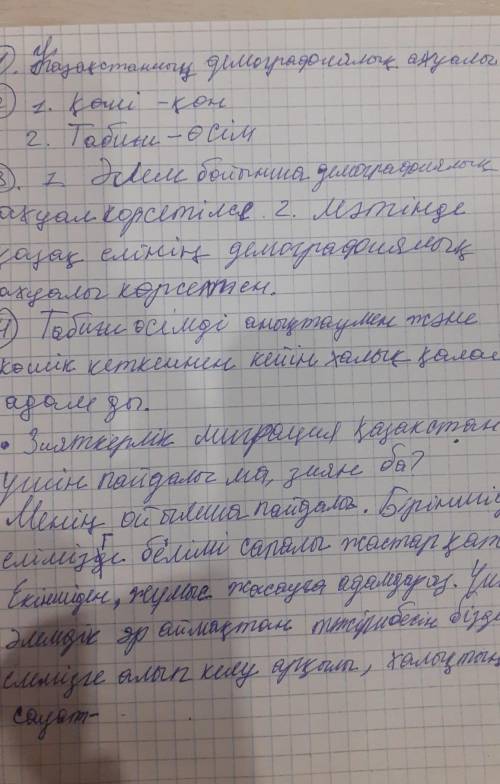 1. Қазақстанның демографиялық ахуалы
2) 1. Көші-қон
2. Табиғи-өсім
3). 1. Әлем бойынша демографиялық
ахуал көрсетілсе. 2. Мәтінде
қазақ елінің демографиялық
ахуалы көрсеткен.
4) Табиғи өсімді анықтаумен және
кейін халық қалай
адам ды.
• Зияткерлік миграция Қазақстан
үшін пайдалы ма, зиян ба?
Менің ойымша пайдалы. Біріншід
елімізде білімі саралы жастар қат
Екіншіден, жұмыс жасауға адамдар аз. Үш
әлемдік әр аймақтан тәжірибесін бізді
елімізге алып келу арқылы, халықтың
сауат-